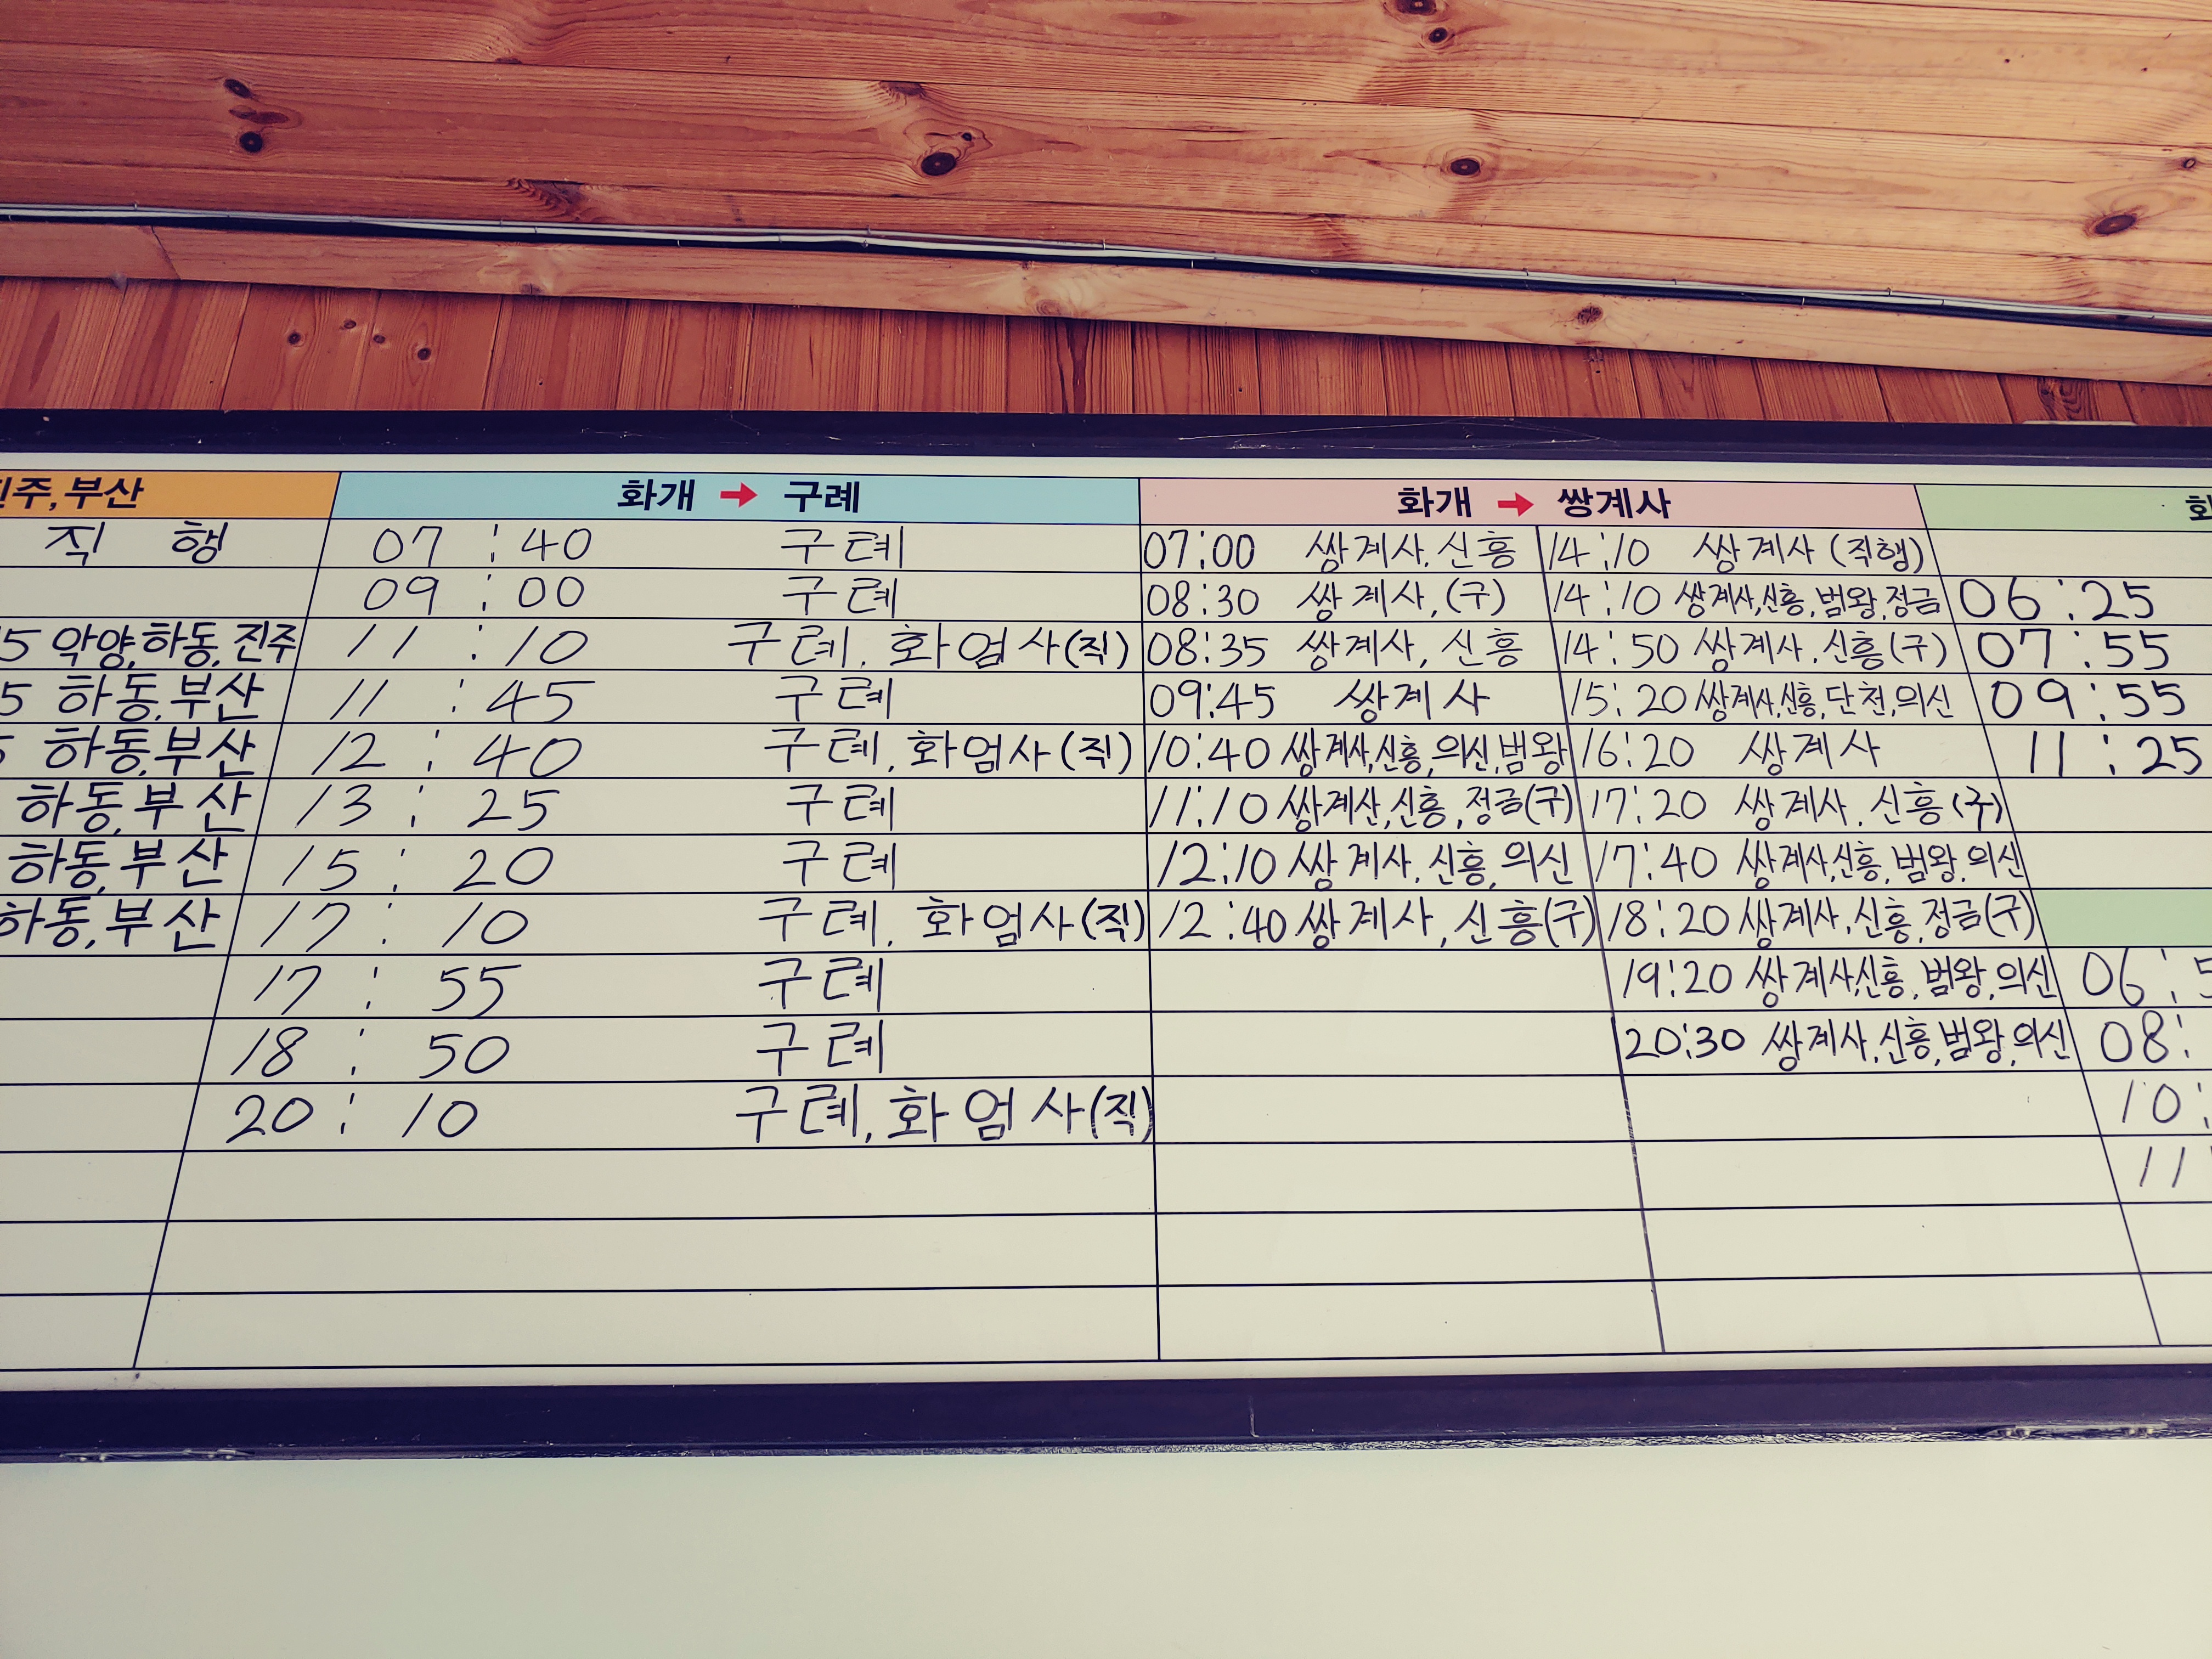 진주, 부산 화개 → 구례 화개 → 쌍계사 화
직 행 07:40 구례 07:00 쌍계사, 신흥 14:10 쌍계사 (직행)
09:00 구례 08:30 쌍계사, (구) 14:10 쌍계사, 신흥, 범왕, 정금 06:25
5 악양, 하동, 진주 11:10 구례, 화엄사(직) 08:35 쌍계사, 신흥 14:50 쌍계사, 신흥(구) 07:55
5 하동, 부산 11:45 구례 09:45 쌍계사 15:20 쌍계사, 신흥, 단천, 의신 09:55
5 하동, 부산 12:40 구례, 화엄사(직) 10:40 쌍계사, 신흥, 의신, 범왕 16:20 쌍계사 11:25
하동, 부산 13:25 구례 11:10 쌍계사, 신흥, 정금(구) 17:20 쌍계사, 신흥(구)
하동, 부산 15:20 구례 12:10 쌍계사, 신흥, 의신 17:40 쌍계사, 신흥, 범왕, 의신
하동, 부산 17:10 구례, 화엄사(직) 12:40 쌍계사, 신흥(구) 18:20 쌍계사, 신흥, 정금(구)
17:55 구례 19:20 쌍계사, 신흥, 범왕, 의신 06:5
18:50 구례 20:30 쌍계사, 신흥, 범왕, 의신 08:
20:10 구례, 화엄사(직) 10:
11